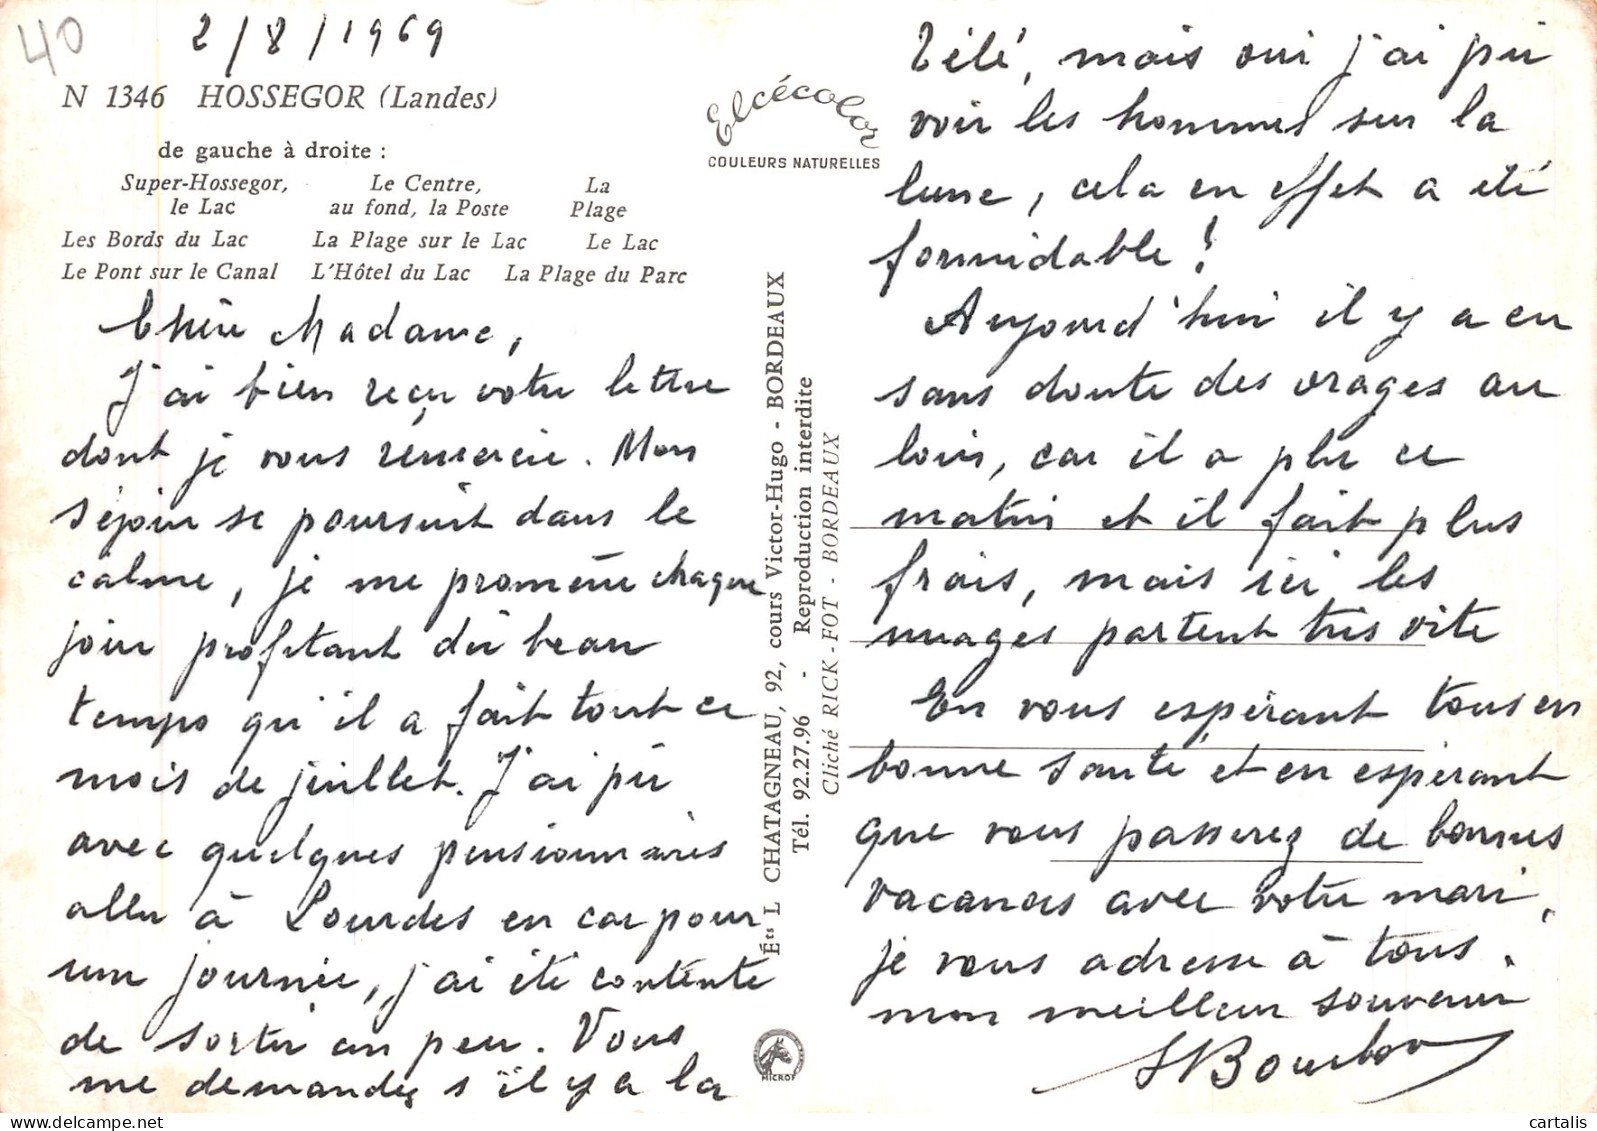 40
2/8/1969
N 1346 HOSSEGOR (Landes)
de gauche à droite :
Super-Hossegor, Le Centre, La
le Lac au fond, la Poste Plage
Les Bords du Lac La Plage sur le Lac Le Lac
Le Pont sur le Canal L'Hôtel du Lac La Plage du Parc
Chère Madame,
J'ai bien reçu votre lettre
dont je vous remercie. Mon
séjour se poursuit dans le
calme, je me promène chaque
jour profitant du beau
temps qu'il a fait tout ce
mois de juillet. J'ai pû
avec quelques pensionnaires
aller à Lourdes en car pour
une journée, j'ai été contente
de sortir un peu. Vous
me demandez s'il y a la
Elcécolor
COULEURS NATURELLES
Éts L CHATAGNEAU, 92, cours Victor-Hugo - BORDEAUX
Tél. 92.27.96 - Reproduction interdite
Cliché RICK-FOT - BORDEAUX
MICROF
Télé, mais oui j'ai pu
voir les hommes sur la
lune, cela en effet a été
formidable !
Aujourd'hui il y a eu
sans doute des orages au
loin, car il a plu ce
matin et il fait plus
frais, mais ici les
nuages partent très vite
En vous espérant tous en
bonne santé et en espérant
que vous passerez de bonnes
vacances avec votre mari,
je vous adresse à tous,
mon meilleur souvenir
cartalis